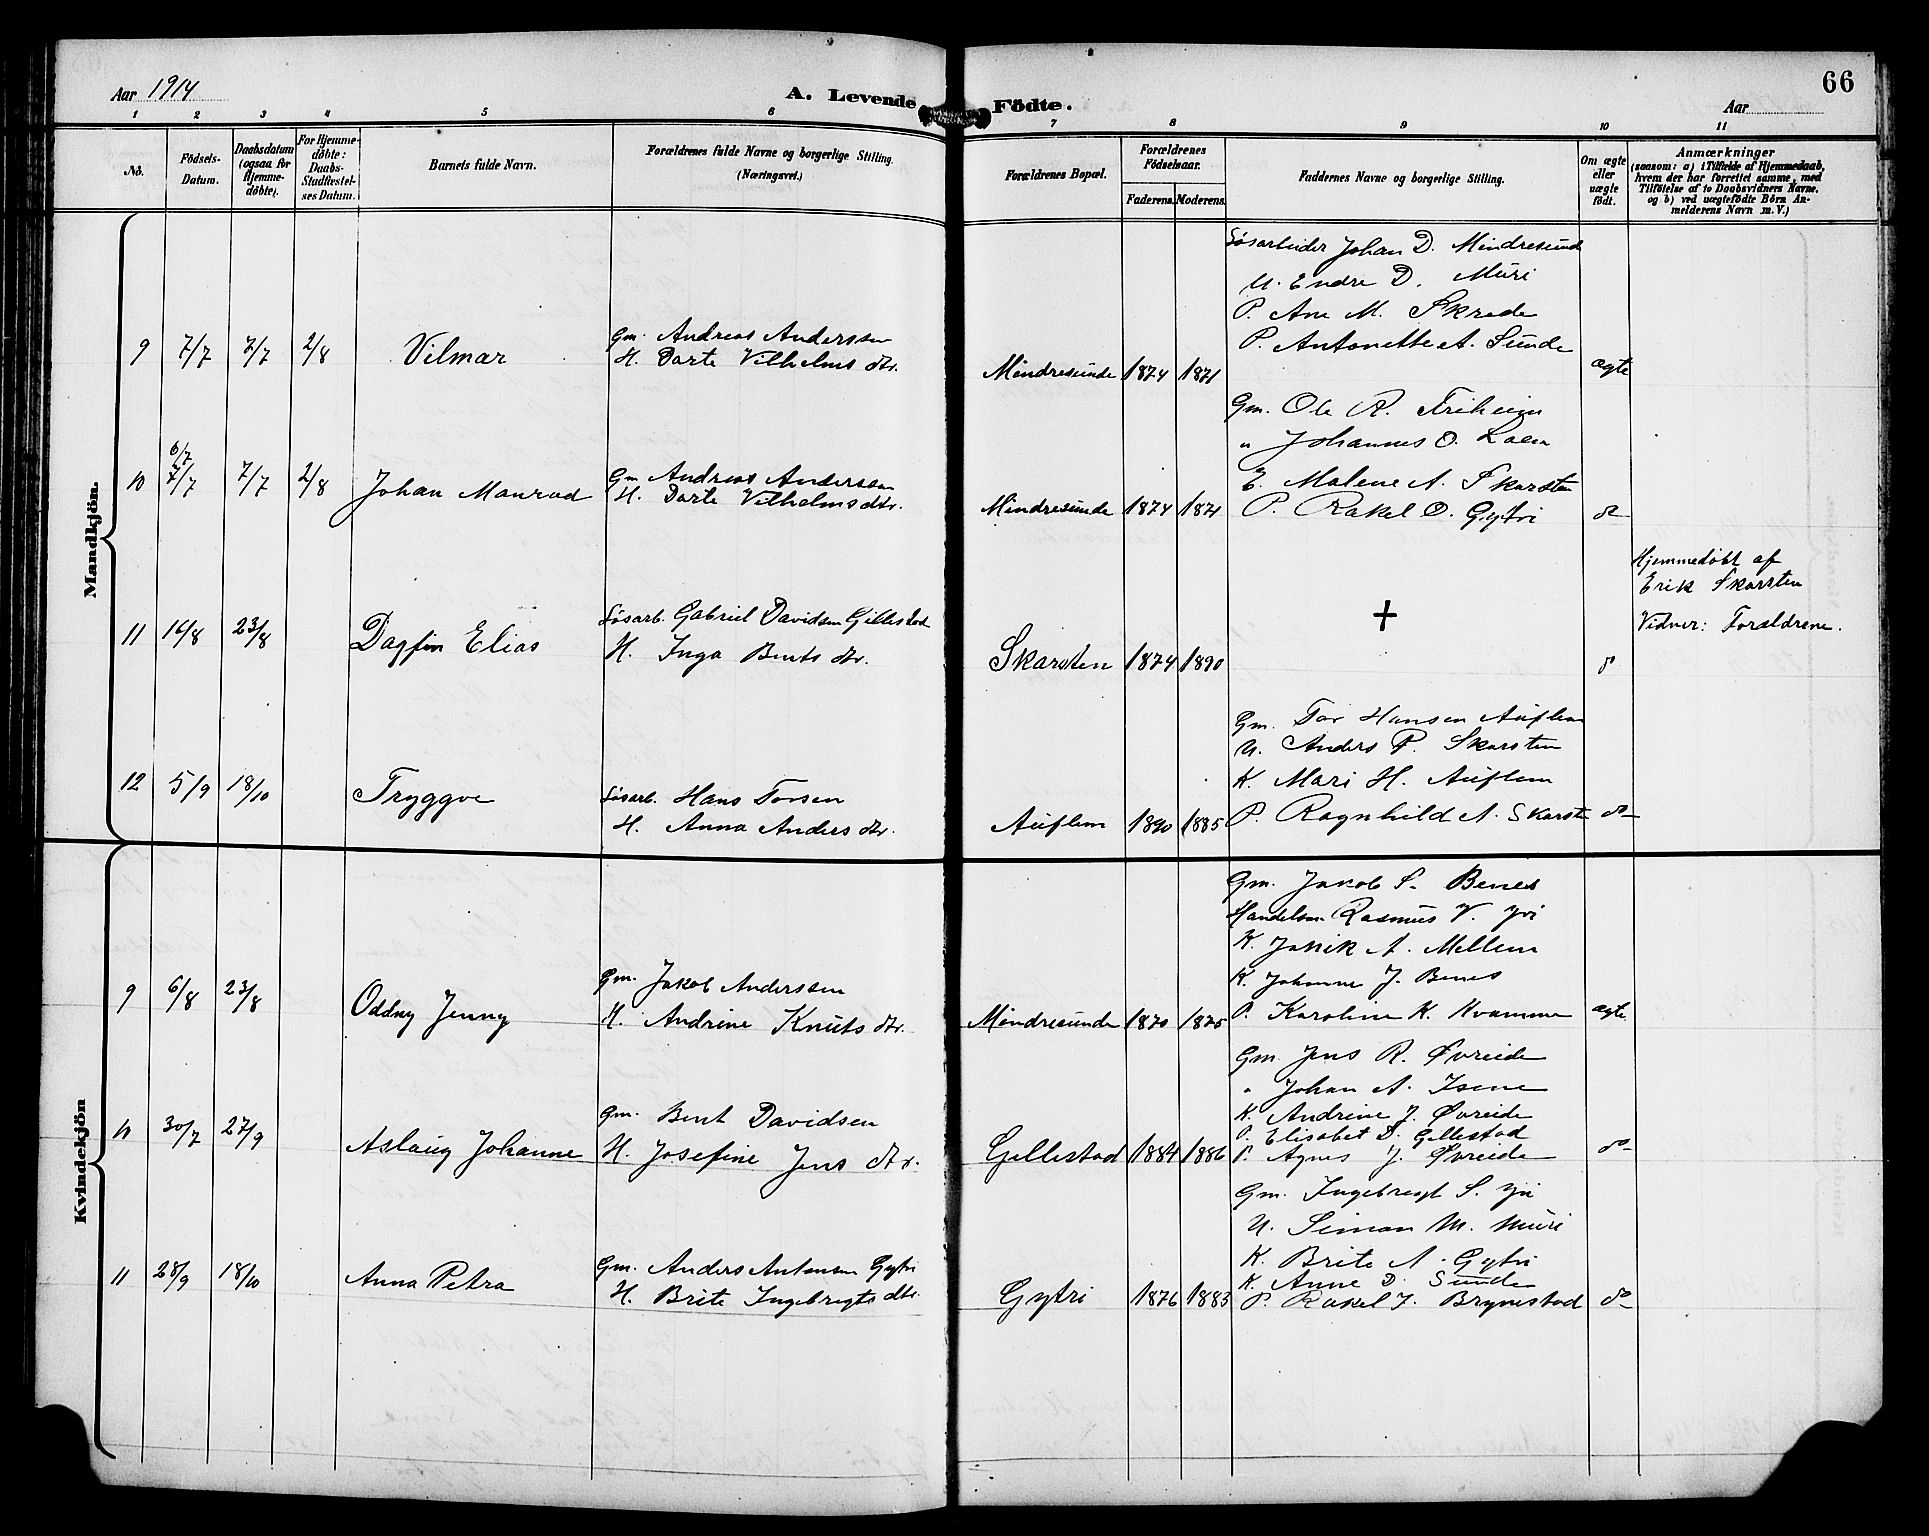 66
Aar 1914
A. Levende Födte.
Aar
1 2 3 4 5 6 7 8 9 10 11
No.
Födsels-
Datum.
Daabsdatum
(ogsaa for
Hjemme-
döbte).
For Hjemme-
döbte:
Daabs-
Stadfæstel-
ses Datum.
Barnets fulde Navn.
Forældrenes fulde Navne og borgerlige Stilling.
(Næringsvei.)
Forældrenes Bopæl.
Forældrenes
Födselsaar.
Faderens. Moderens.
Faddernes Navne og borgerlige Stilling.
Om ægte
eller
uægte
födt.
Anmærkninger
(saasom: a) i Tilfælde af Hjemmedaab,
hvem der har forrettet samme, med
Tilföielse af to Daabsvidners Navne.
og b) ved uægtefödte Börn An-
melderens Navn m. V.)
Mandkjön.
9 7/7 7/7 2/8 Vilmar
Gm. Andreas Anderssen
H. Dorte Vilhelms dtr.
Mindresunde 1874 1871
Løsarbeider Johan D. Mindresund
U. Endre D. Muri
P. Ane M. Skrede
P. Antonette A. Sunde
ægte
10 6/7 7/7 7/7 2/8 Johan Monrad
Gm Andreas Andersen
H. Dorte Vilhelmsdtr.
Mindresunde 1874 1871
Gm. Ole R. Friheim
" Johannes O. Loen
E. Malene A. Skarsten
P. Rakel D. Gytri
do
11 16/8 23/8 Dagfin Elias
Løsarb. Gabriel Davidsen Gillestad
H. Inga Bents dtr.
Skarsten 1874 1890
+
do
Hjemmedøbt af
Erik Skarsten
Vidner: Forældrene.
12 5/9 18/10 Tryggve
Løsarb. Hans Torsen
H. Anna Anders dtr.
Auflem 1890 1885
Gm. Tor Hansen Auflem
U. Anders P. Skarsten
K. Mari H. Auflem
P. Ragnhild A. Skarste
do
Kvindekjön
9 6/8 23/8 Oddny Jenny
Gm. Jakob Anderssen
H. Andrine Knuts dtr.
Mindresunde 1870 1875
Gm. Jakob S. Benes
Handelsm. Rasmus V. Yri
K. A. Mellem
K. Johanne J. Benes
P. Karoline K. Kvamme
ægte
10 30/7 27/9 Aslaug Johanne
Gm. Bent Davidsen
H. Josefine Jens dtr.
Gellestad 1884 1886
Gm. Jens R. Øvreide
" Johan A. Isene
K. Andrine J. Øvreide
P. Elisabet D. Gellestad
P. Agnes J. Øvreide
do
11 28/9 18/10 Anna Petra
Gm. Anders Antonsen Gytri
H. Brite Ingebregts dtr.
Gytri 1876 1883
Gm. Ingebregt S. Yri
U. Simon M. Muri
K. Brite A. Gytri
K. Anne D. Sunde
P. Rakel J. Brynestad
do